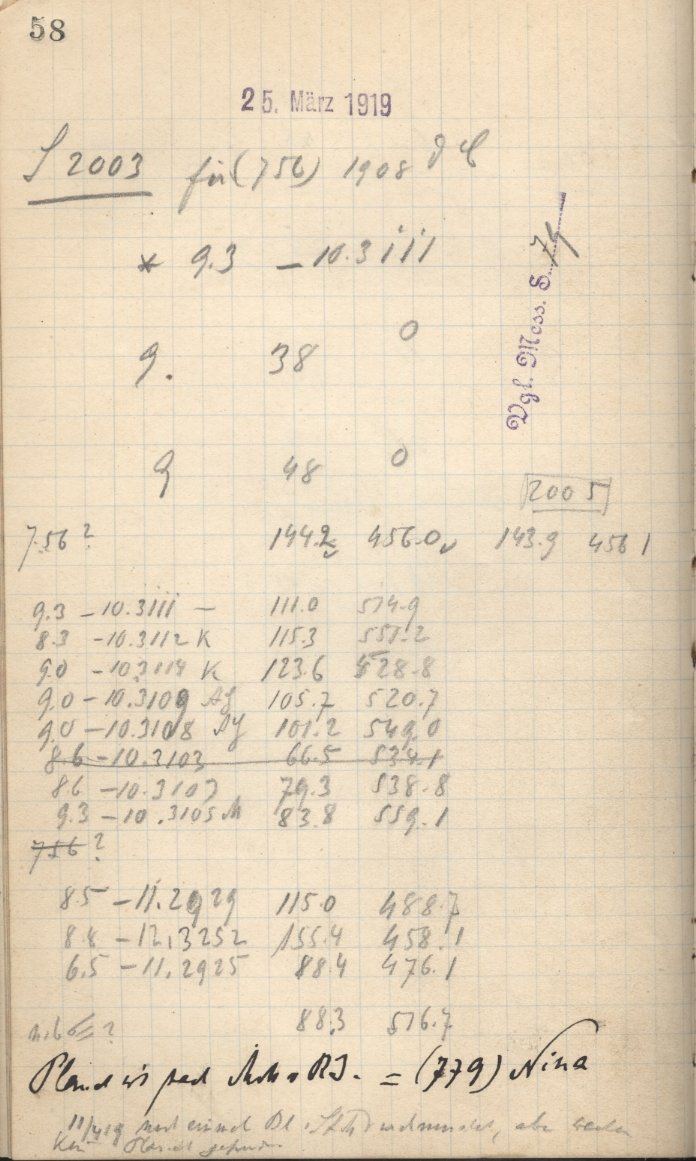 58
25. März 1919
S 2003 für (756) 1908
* 9.3 - 10.3111
9. 38 0
Vgl. Mess. S. 74
9 48 0
2005
756? 144.2 456.0 143.9 456 1
9.3 - 10.3111 - 111.0 574.9
8.3 - 10.3112 K 115.3 551.2
9.0 - 10.3114 K 123.6 528.8
9.0 - 10.3109 AG 105.7 520.7
9.0 - 10.3108 AG 101.2 549.0
8.6 - 10.3103 66.5 534.1
8.6 - 10.3103 79.3 538.8
9.3 - 10.3105 83.8 559.1
756?
8.5 - 11.2929 115.0 488.7
8.8 - 12.3252 155.4 458.1
6.5 - 11.2925 88.4 476.1
? 88.3 516.7
= (779) Nina
11/4 19 noch einmal Pl.
Kein